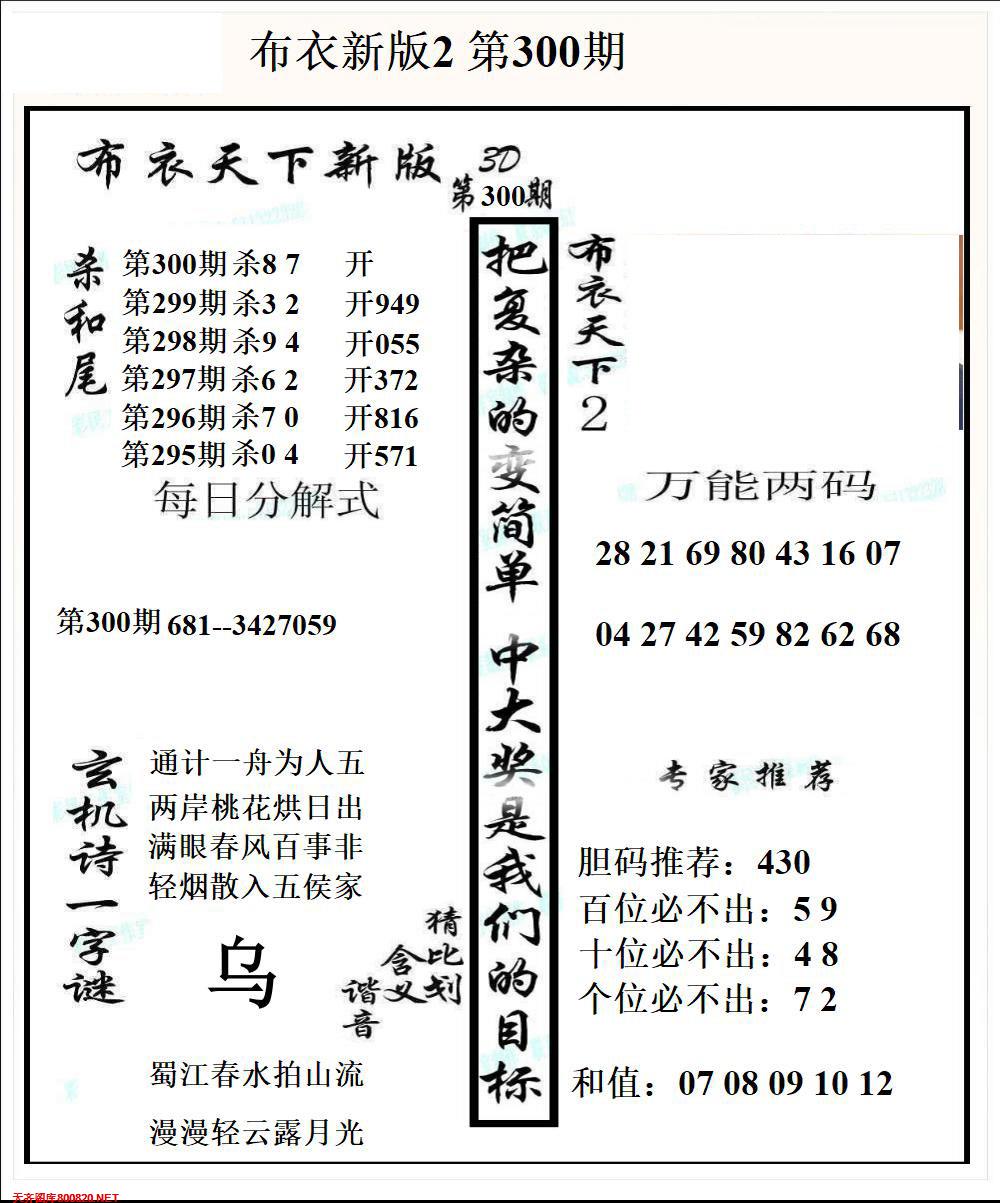 布衣新版2 第300期
布衣天下新版 3D
第300期
杀和尾
第300期 杀8 7 开
第299期 杀3 2 开949
第298期 杀9 4 开055
第297期 杀6 2 开372
第296期 杀7 0 开816
第295期 杀0 4 开571
每日分解式
第300期 681--3427059
玄机诗一字谜
通计一舟为人五
两岸桃花烘日出
满眼春风百事非
轻烟散入五侯家
乌
猜比划
含义
谐音
蜀江春水拍山流
漫漫轻云露月光
把复杂的变简单 中大奖是我们的目标
布衣天下2
万能两码
28 21 69 80 43 16 07
04 27 42 59 82 62 68
专家推荐
胆码推荐：430
百位必不出：5 9
十位必不出：4 8
个位必不出：7 2
和值：07 08 09 10 12
天齐图库800820.NET